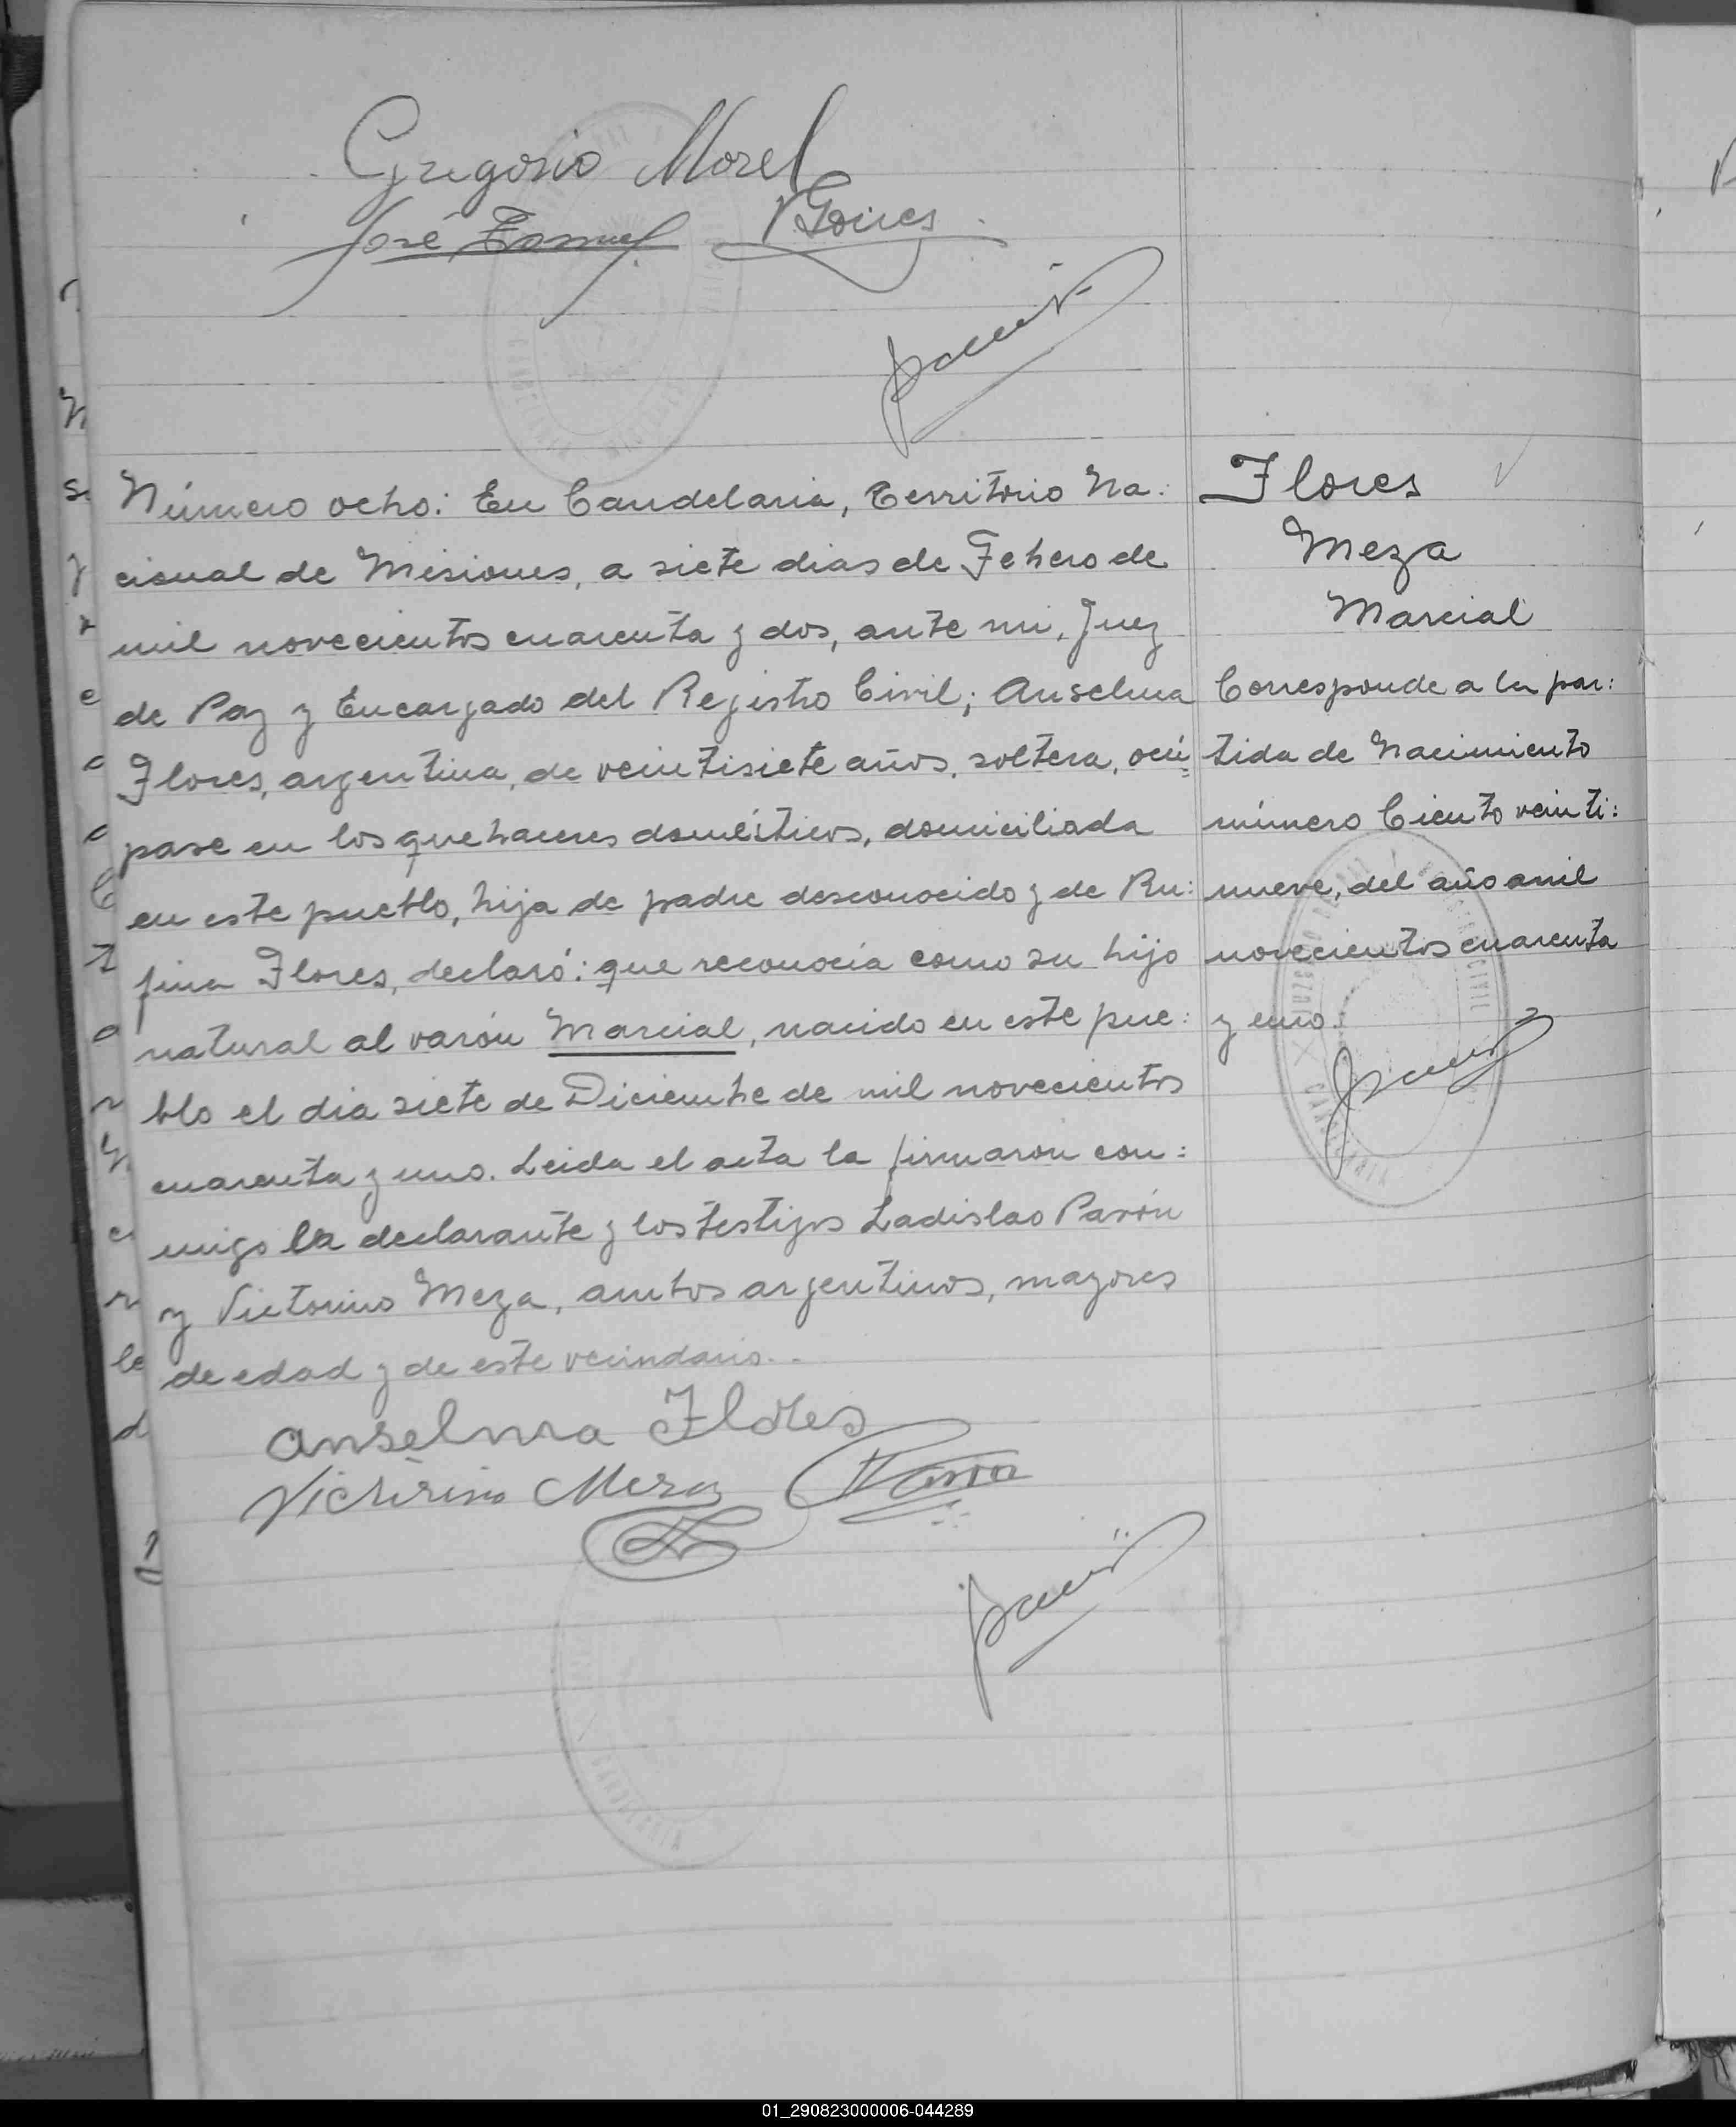 Gregorio Morel
José
Número ocho: En Candelaria, Territorio Na:
cional de Misiones, a siete dias de Febrero de
mil novecientos cuarenta y dos, ante mi, Juez
de Paz y Encargado del Registro Civil; Anselma
Flores, argentina, de veintisiete años, soltera, ocú
pase en los quehaceres domésticos, domiciliada
en este pueblo, hija de padre desconocido y de Ru:
fina Flores, declaró: que reconocia como su hijo
natural al varón Marcial, nacido en este pue:
blo el dia siete de Diciembre de mil novecientos
cuarenta y uno. Leida el acta la firmaron con:
migo la declarante y los testigos Ladislao Pavón
y Victorino Meza, ambos argentinos, mayores
de edad y de este vecindario.-
Anselma Flores
Victorino Meza
Flores
Meza
Marcial
Corresponde a la par:
tida de Nacimiento
número Ciento veinti:
nueve, del año mil
novecientos cuarenta
y uno.
CANDELARIA
01_290823000006-044289